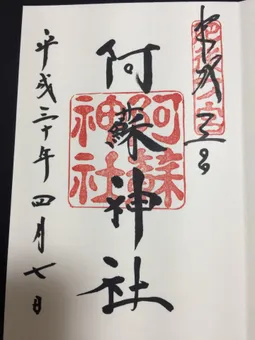 阿蘇神社
阿蘇神社
平成三十年四月七日